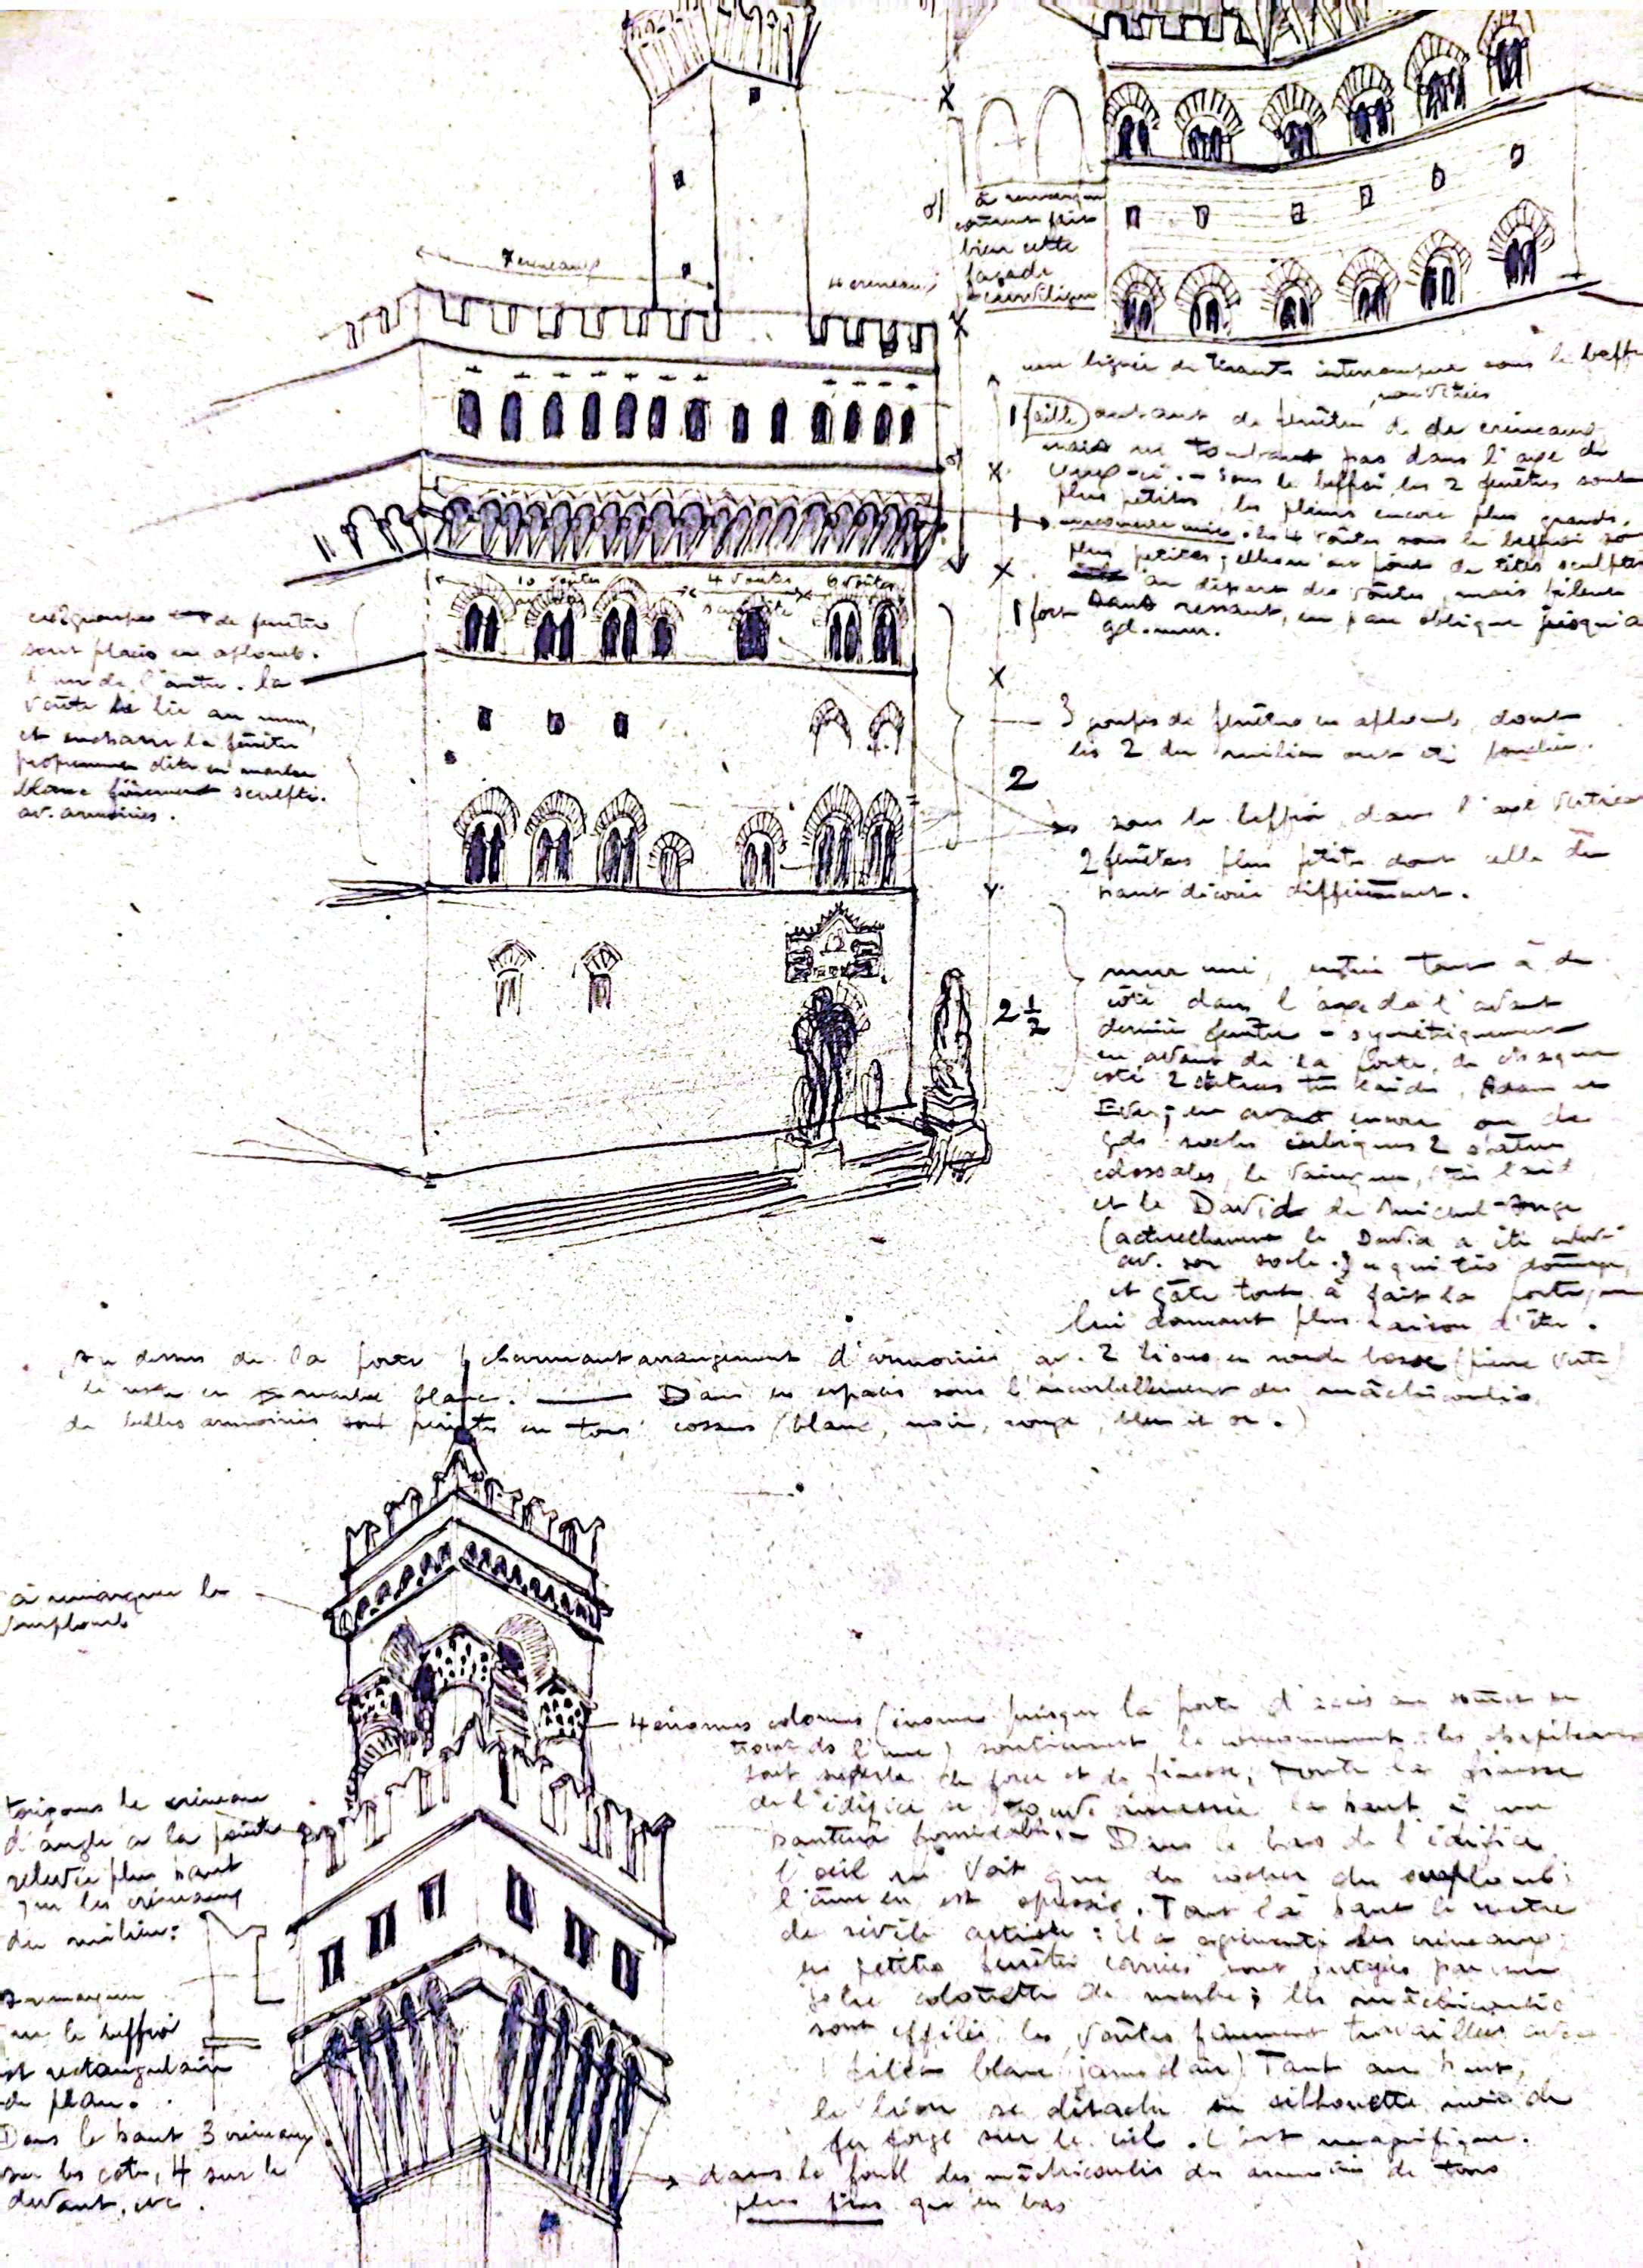 7 creneaux
4 creneaux
à remarquer
comment fait
bien cette
façade
curviligne
une lignée de tirants interrompue sous le beffr
non vitrées
1 faible autant de fenêtres que de créneaux
mais ne tombant pas dans l'axe de
ceux-ci. - Sous le beffroi les 2 fenêtres sont
plus petites, les pleins encore plus grands.
1 les 4 voûtes sous le beffroi sont
plus petites; elles n'ont point de têtes sculptées
au départ des voûtes, mais filent
1 fort sans ressaut, en pan oblique jusqu'au
gd. mur.
10 voûtes
4 voûtes
6 voûtes
ces 2 groupes de fenêtres
sont placés en aplomb
l'un de l'autre. la
voûte se lie au mur,
et enchasse la fenêtre
proprement dite en marbre
blanc finement sculpté.
av. armoiries.
3 groupes de fenêtres en aplomb, dont
les 2 du milieu ont été
2
sous le beffroi, dans l'axe vertical
2 fenêtres plus petites dont celle du
haut décorée différemment.
2 ½
mur uni, entrée tout à de
côté dans l'axe de l'avant
dernière fenêtre - symétriquement
en avant de la porte, de chaque
côté 2 statues très laides, Adam et
Eve; en avant encore on de
gds socles cubiques 2 statues
colossales, le vainqueur, très laid
et le David de Michel-Ange
(actuellement le David a été enlevé
av. son socle. ce qui très dommage,
et gâte tout à fait la porte, ne
lui donnant plus raison d'être.
Au dessus de la porte charmant arrangement d'armoiries av. 2 lions en ronde bosse (pierre verte)
le reste en marbre blanc. Dans les espaces sous l'encorbellement des mâchicoulis
de belles armoiries sont peintes en tons cossus (blanc, noir, rouge, bleu et or.)
à remarquer le
surplomb
4 énormes colonnes (énormes puisque la porte d'accès au sommet se
trouve ds l'une) soutiennent le couronnement: les chapiteaux
sont superbes de force et de finesse; toute la finesse
de l'édifice se trouve ramassée là haut à une
hauteur formidable. - Dans le bas de l'édifice
l'oeil ne voit que du rocher du surplomb;
l'âme en est opressée. Tout là haut le maître
se révèle artiste: il a agrémenté les créneaux;
les petites fenêtres carrées sont partagées par une
jolie colonette de marbre; les mâchicoulis
sont effilés, les voûtes finement travaillées avec
filet blanc jaune clair) Tout au haut,
le lion se détache en silhouette noire de
fer forgé sur le ciel. C'est magnifique.
dans le fond des mâchicoulis des armoiries de tons
plus fins que en bas
toujours le créneau
d'angle a la pointe
relevée plus haut
que les créneaux
du milieu:
Remarquer
que le beffroi
est rectangulaire
de plan.
Dans le haut 3 créneaux
sur les côtés, 4 sur le
devant, etc.